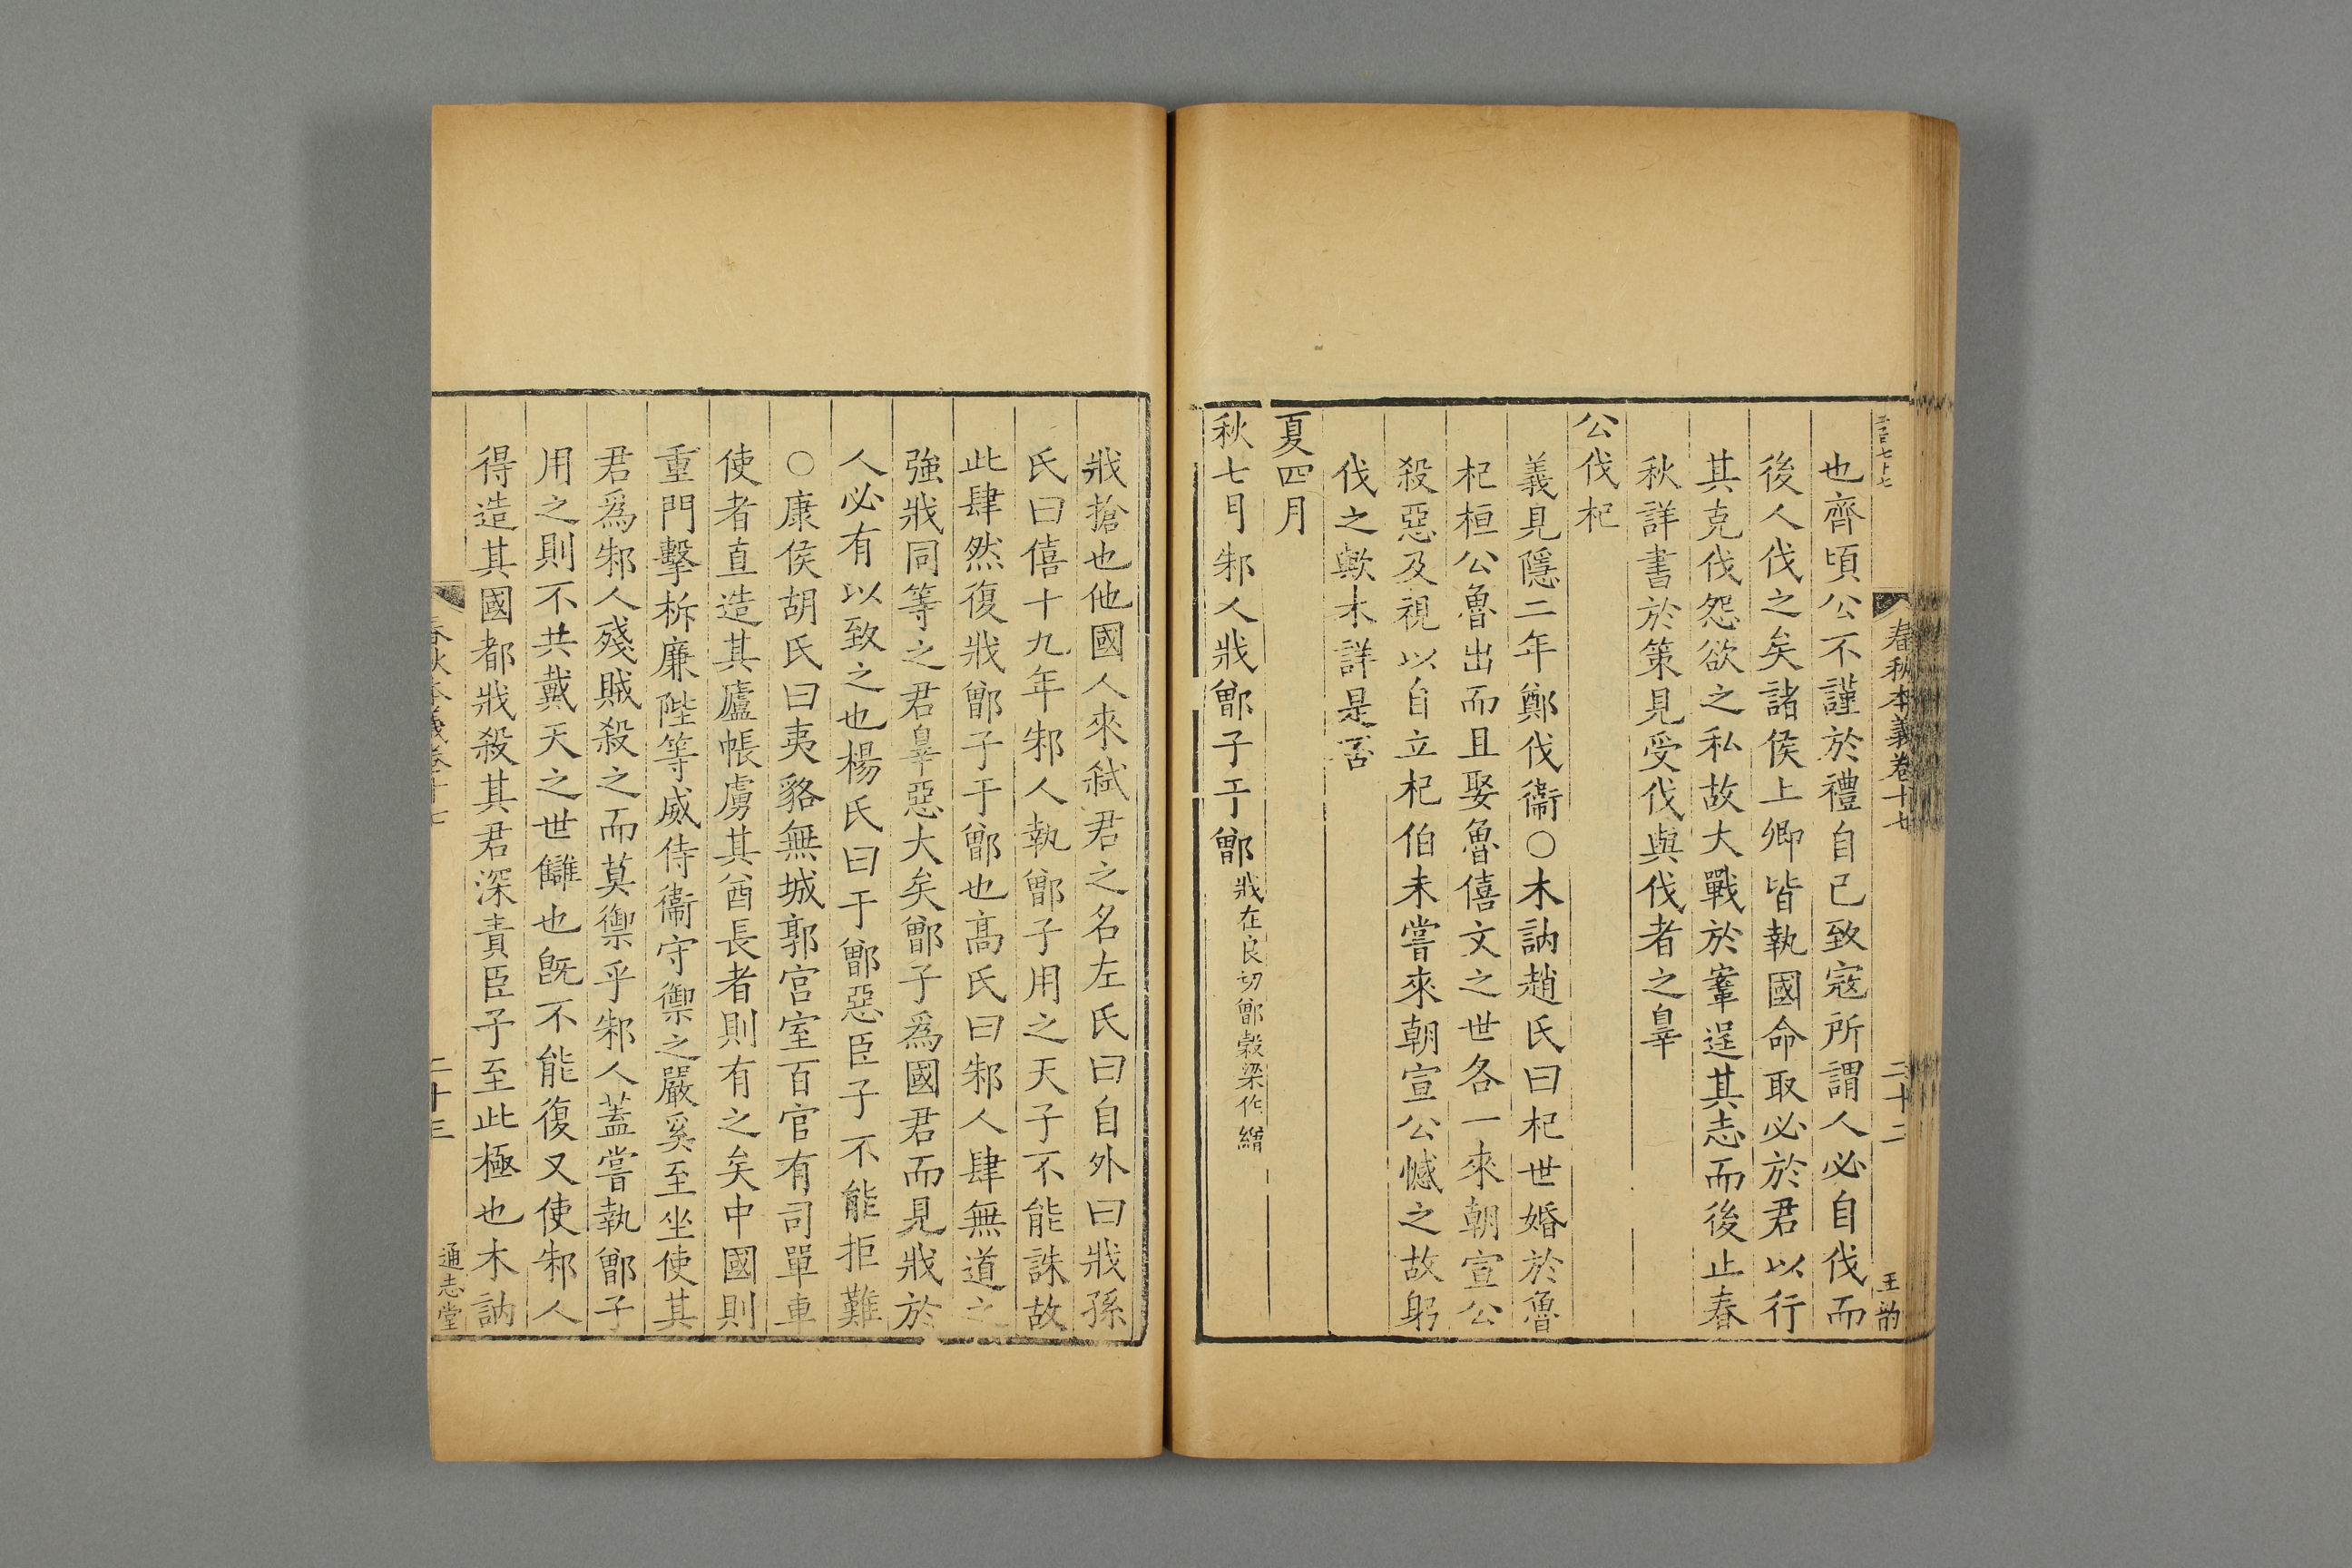 春秋本義卷十七
二十二
王韵
也齊頃公不謹於禮自己致寇所謂人必自伐而
後人伐之矣諸侯上卿皆執國命取必於君以行
其克伐怨欲之私故大戰於鞌逞其志而後止春
秋詳書於策見受伐與伐者之辠
公伐杞
義見隱二年鄭伐衞○木訥趙氏曰杞世婚於魯
杞桓公魯出而且娶魯僖文之世各一來朝宣公
殺惡及視以自立杞伯未嘗來朝宣公憾之故躬
伐之歟未詳是否
夏四月
秋七月邾人戕鄫子于鄫戕在良切鄫穀梁作繒
戕搶也他國人來弑君之名左氏曰自外曰戕孫
氏曰僖十九年邾人執鄫子用之天子不能誅故
此肆然復戕鄫子于鄫也髙氏曰邾人肆無道之
強戕同等之君辠惡大矣鄫子爲國君而見戕於
人必有以致之也楊氏曰于鄫惡臣子不能拒難
○康侯胡氏曰夷貉無城郭宫室百官有司單車
使者直造其廬帳虜其酋長者則有之矣中國則
重門擊柝廉陛等威侍衞守禦之嚴奚至坐使其
君爲邾人殘賊殺之而莫禦乎邾人蓋嘗執鄫子
用之則不共戴天之世讎也旣不能復又使邾人
得造其國都戕殺其君深責臣子至此極也木訥
春秋本義卷十七
二十三
通志堂